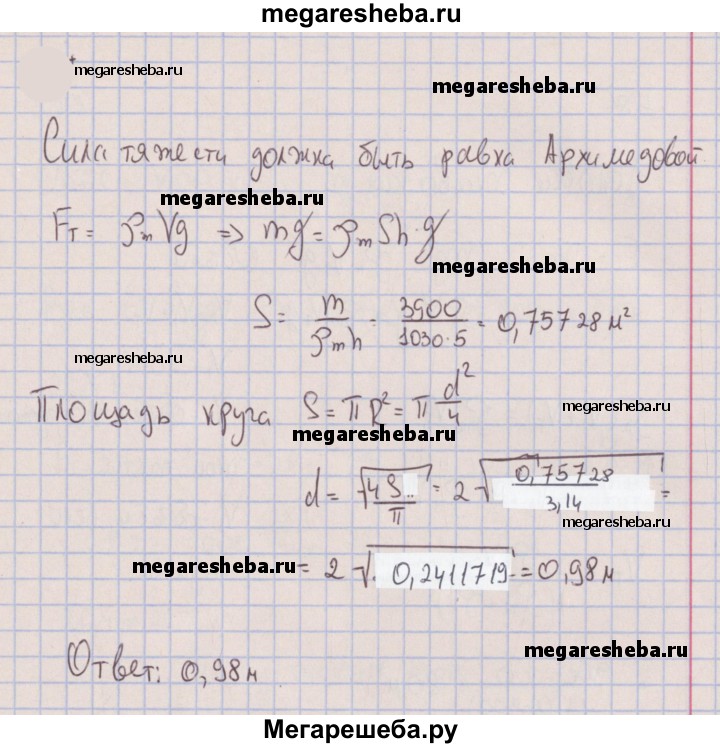 megaresheba.ru
megaresheba.ru
megaresheba.ru
Сила тяжести должна быть равна Архимедовой
megaresheba.ru
Fт = ρmVg => mg = ρmSh·g
megaresheba.ru
S = m/ρmh = 3900/1030·5 = 0,75728 м²
megaresheba.ru
Площадь круга S = πR² = π d²/4
megaresheba.ru
megaresheba.ru
d = √4S/π = 2√0,75728/3,14 =
megaresheba.ru
megaresheba.ru
= 2√0,2411719 = 0,98 м
megaresheba.ru
Ответ: 0,98 м
Мегарешеба.ру